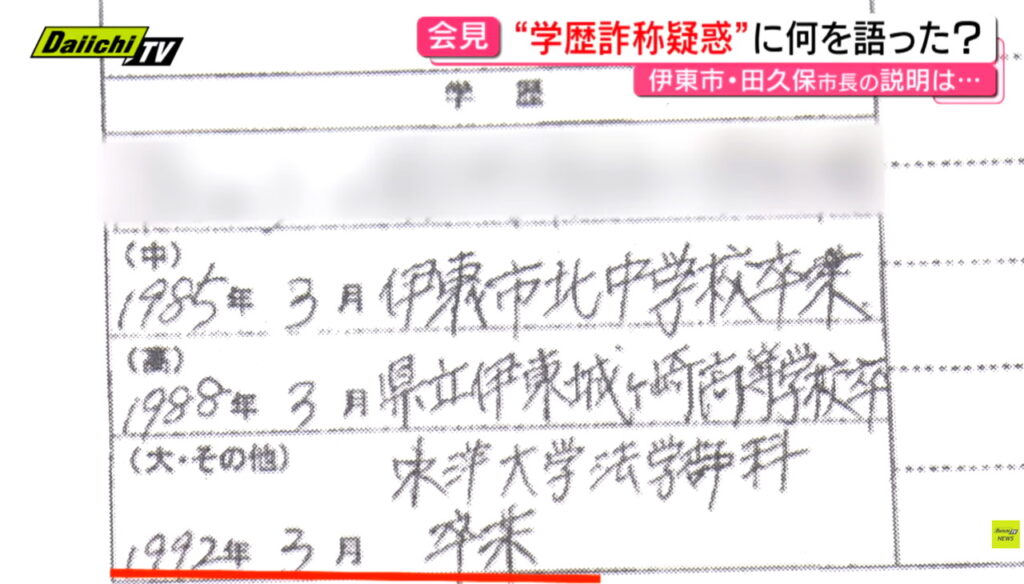 Daiichi TV
会見
“学歴詐称疑惑”に何を語った?
伊東市・田久保市長の説明は…
学 歴
(中)
1985年 3月 伊東市北中学校卒業
(高)
1988年 3月 県立伊東城ヶ崎高等学校卒
(大・その他)
東洋大学法学部科
1992年 3月 卒業
Daiichi TV
NEWS